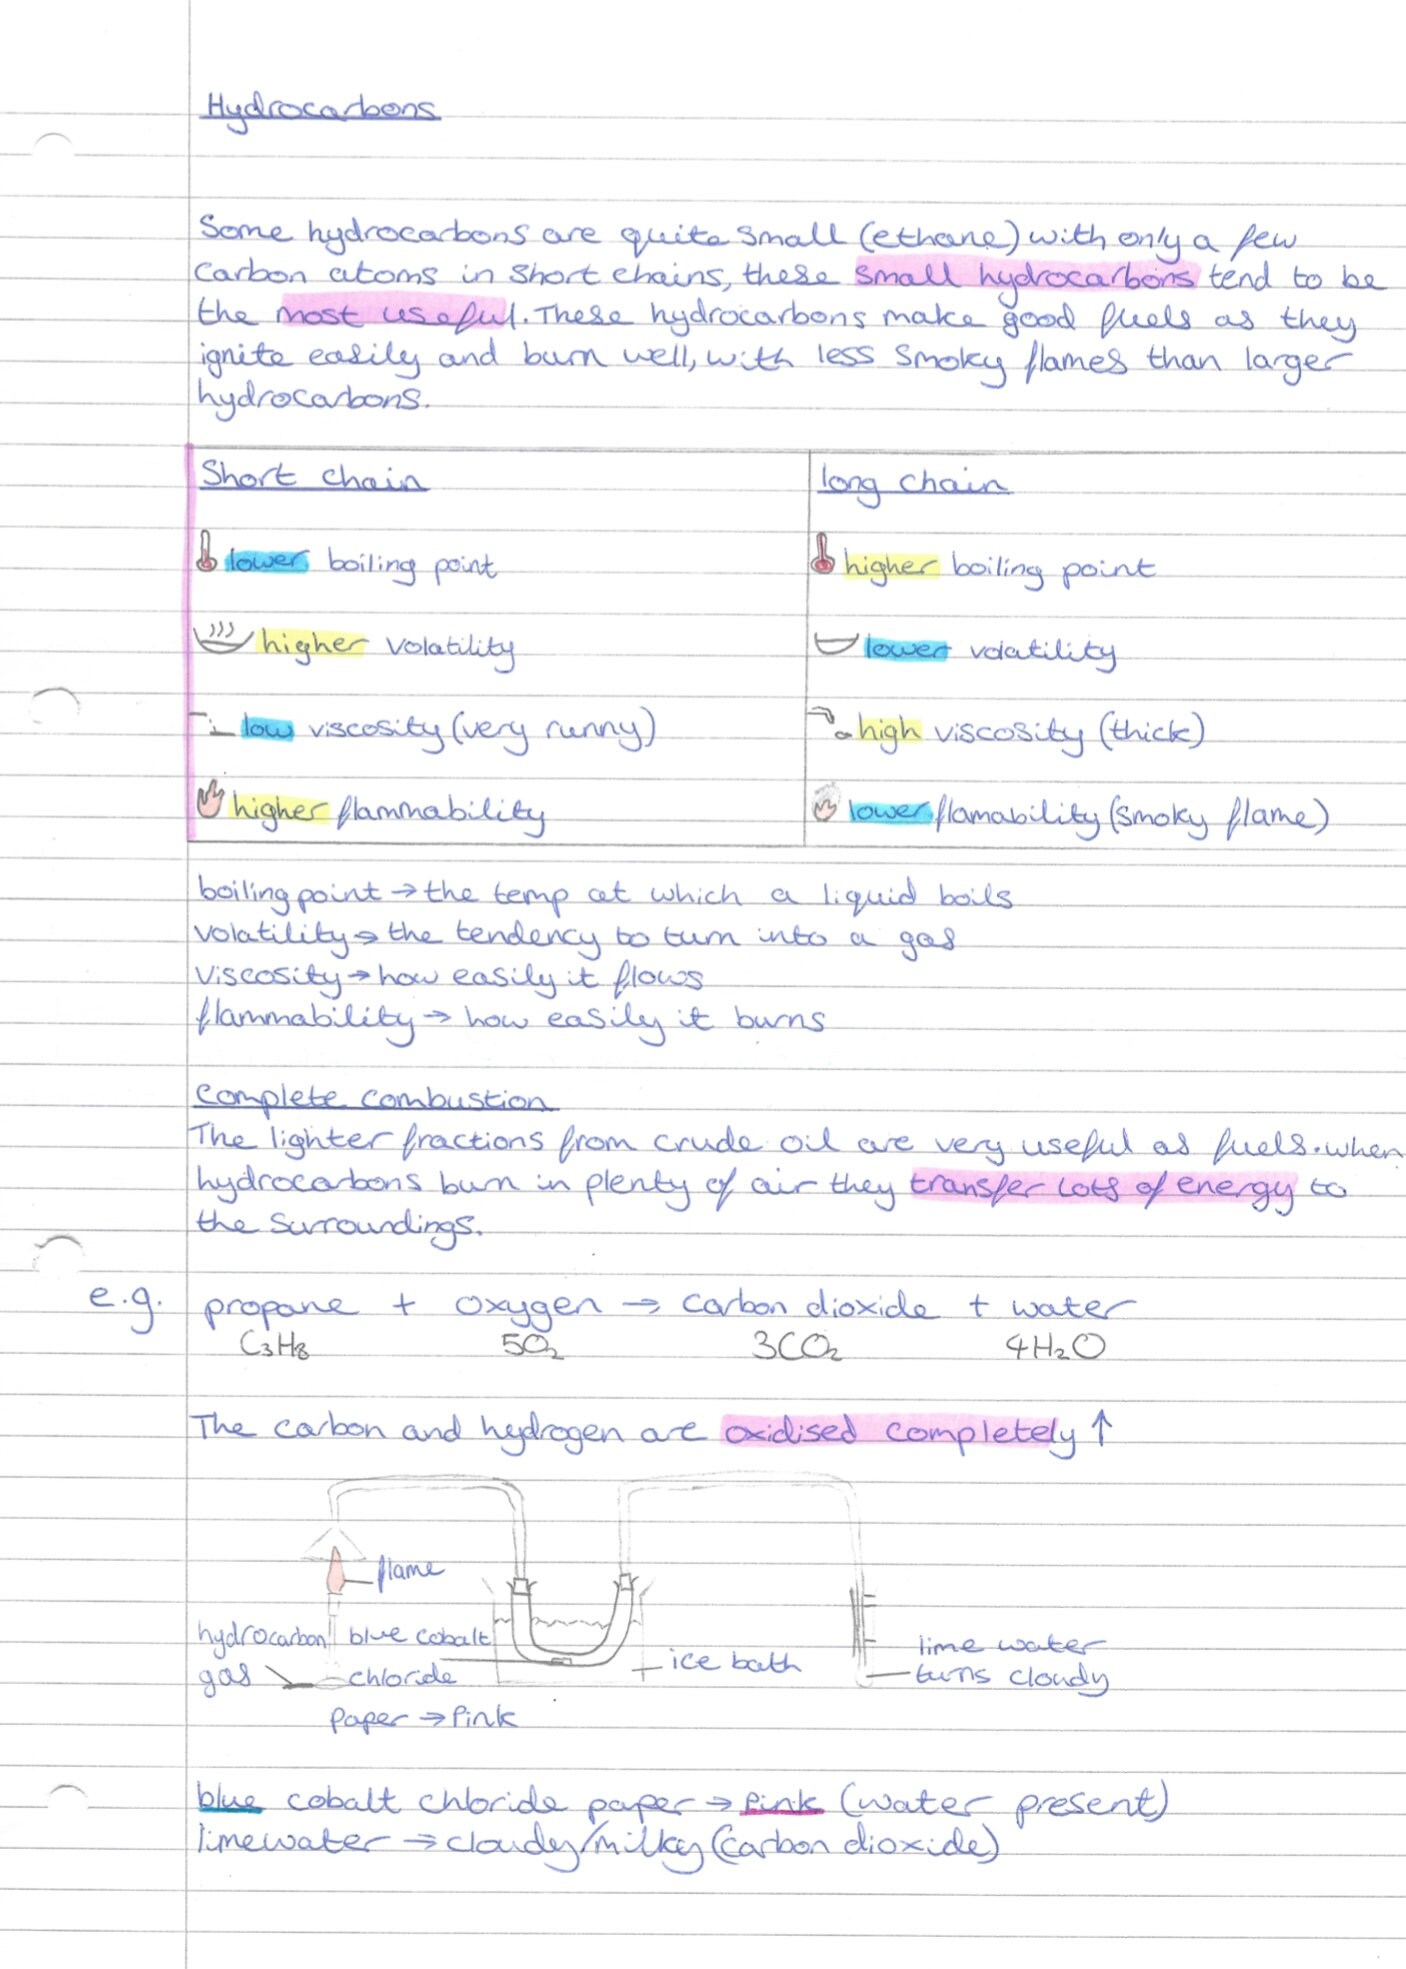 Hydrocarbons
Some hydrocarbons are quite small (ethane) with only a few
carbon atoms in short chains, these small hydrocarbons tend to be
the most useful. These hydrocarbons make good fuels as they
ignite easily and burn well, with less smoky flames than larger
hydrocarbons.
Short chain
lower boiling point
higher volatility
low viscosity (very runny)
higher flammability
long chain
higher boiling point
lower volatility
high viscosity (thick)
lower flamability (smoky flame)
boiling point → the temp at which a liquid boils
volatility → the tendency to turn into a gas
viscosity → how easily it flows
flammability → how easily it burns
Complete combustion
The lighter fractions from crude oil are very useful as fuels. when
hydrocarbons burn in plenty of air they transfer lots of energy to
the surroundings.
e.g. propane + oxygen → carbon dioxide + water
C₃H₈ 5O₂ 3CO₂ 4H₂O
The carbon and hydrogen are oxidised completely ↑
flame
hydrocarbon
gas
blue cobalt
chloride
paper → pink
ice bath
lime water
turns cloudy
blue cobalt chloride paper → pink (water present)
limewater → cloudy/milky (carbon dioxide)